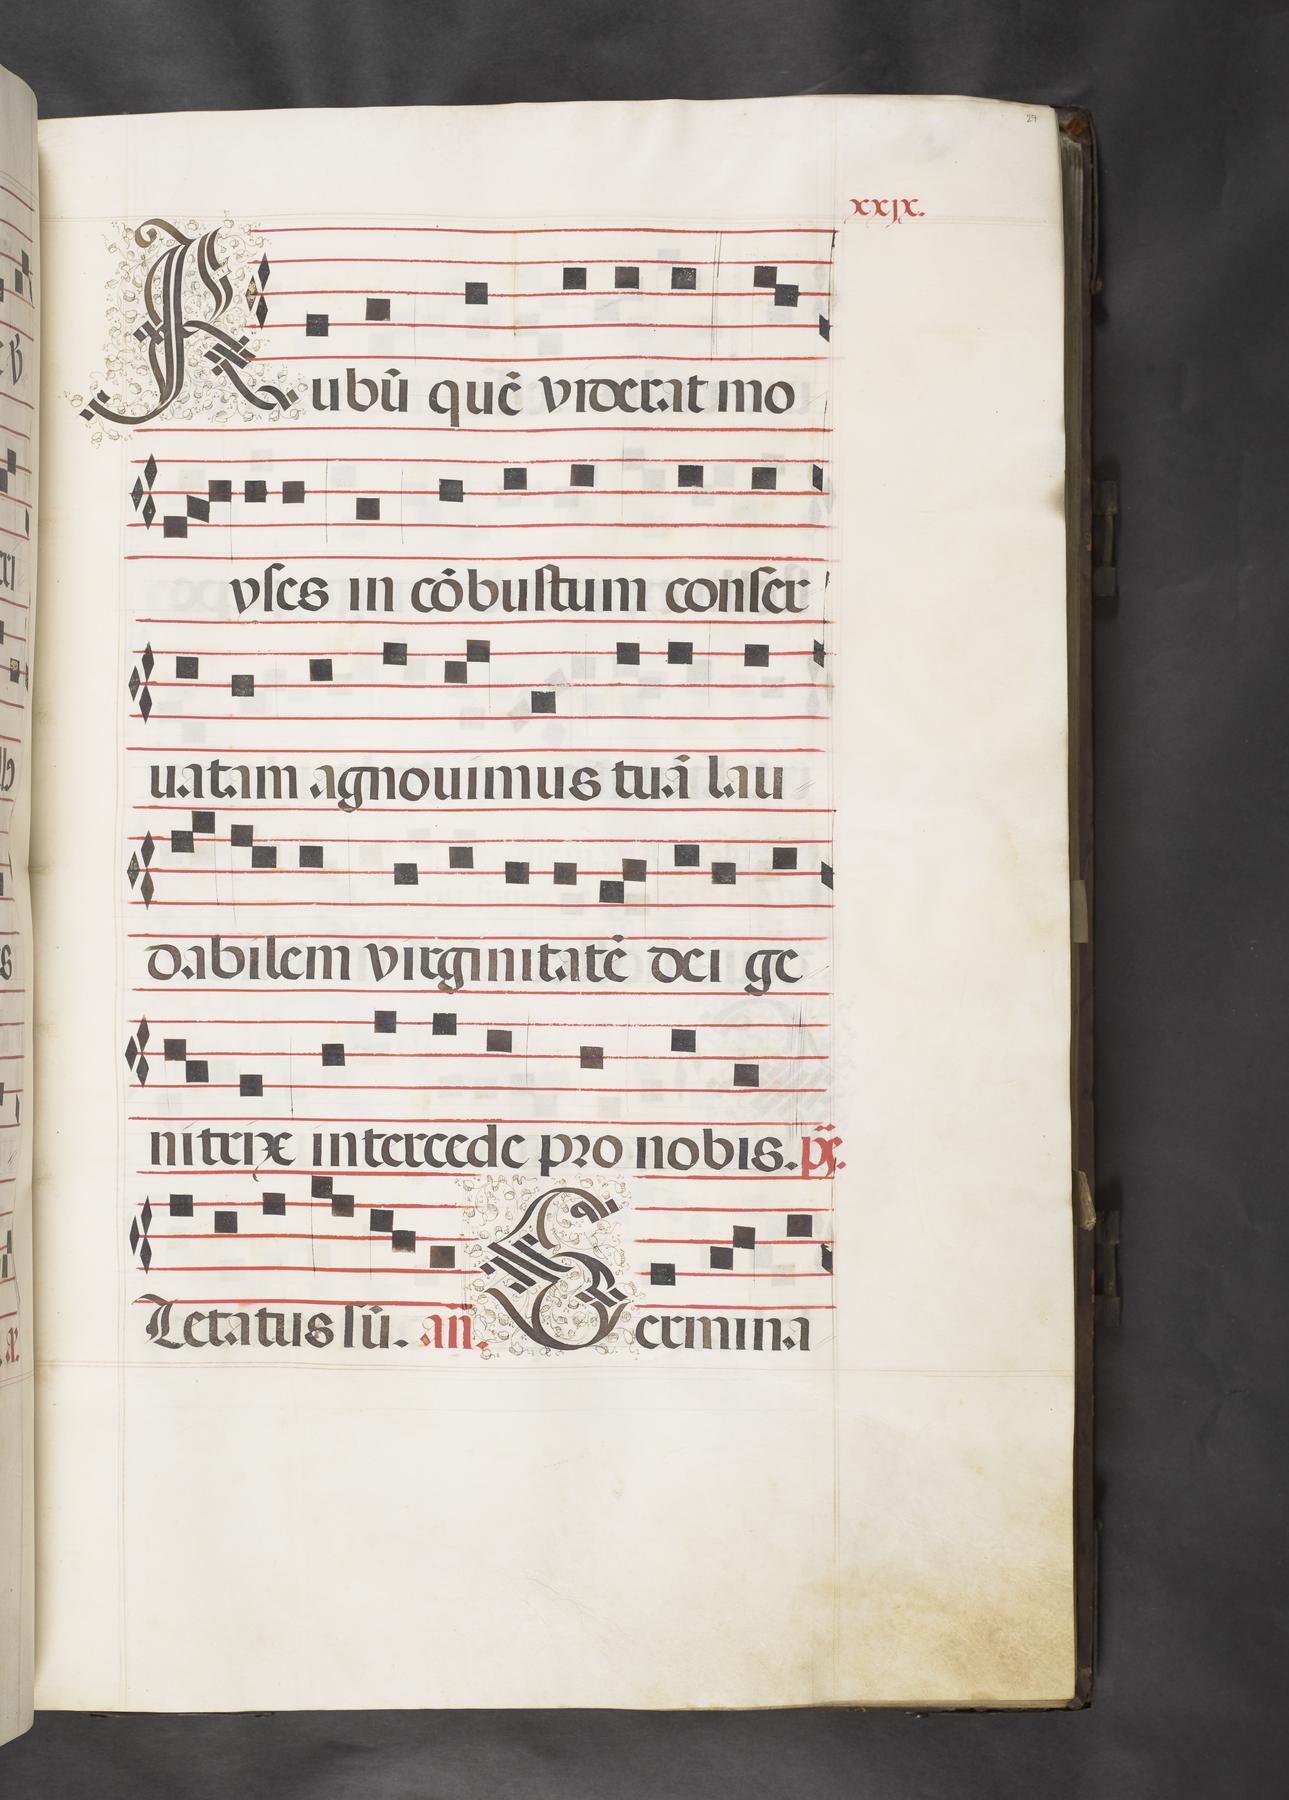 29
xxjx.
Rubū quē viderat mo
yses in cōbustum conser
uatam agnouimus tuā lau
dabilem virginitatē dei ge
nitrix intercede pro nobis. p̄s.
Letatus sū. añ. Germina